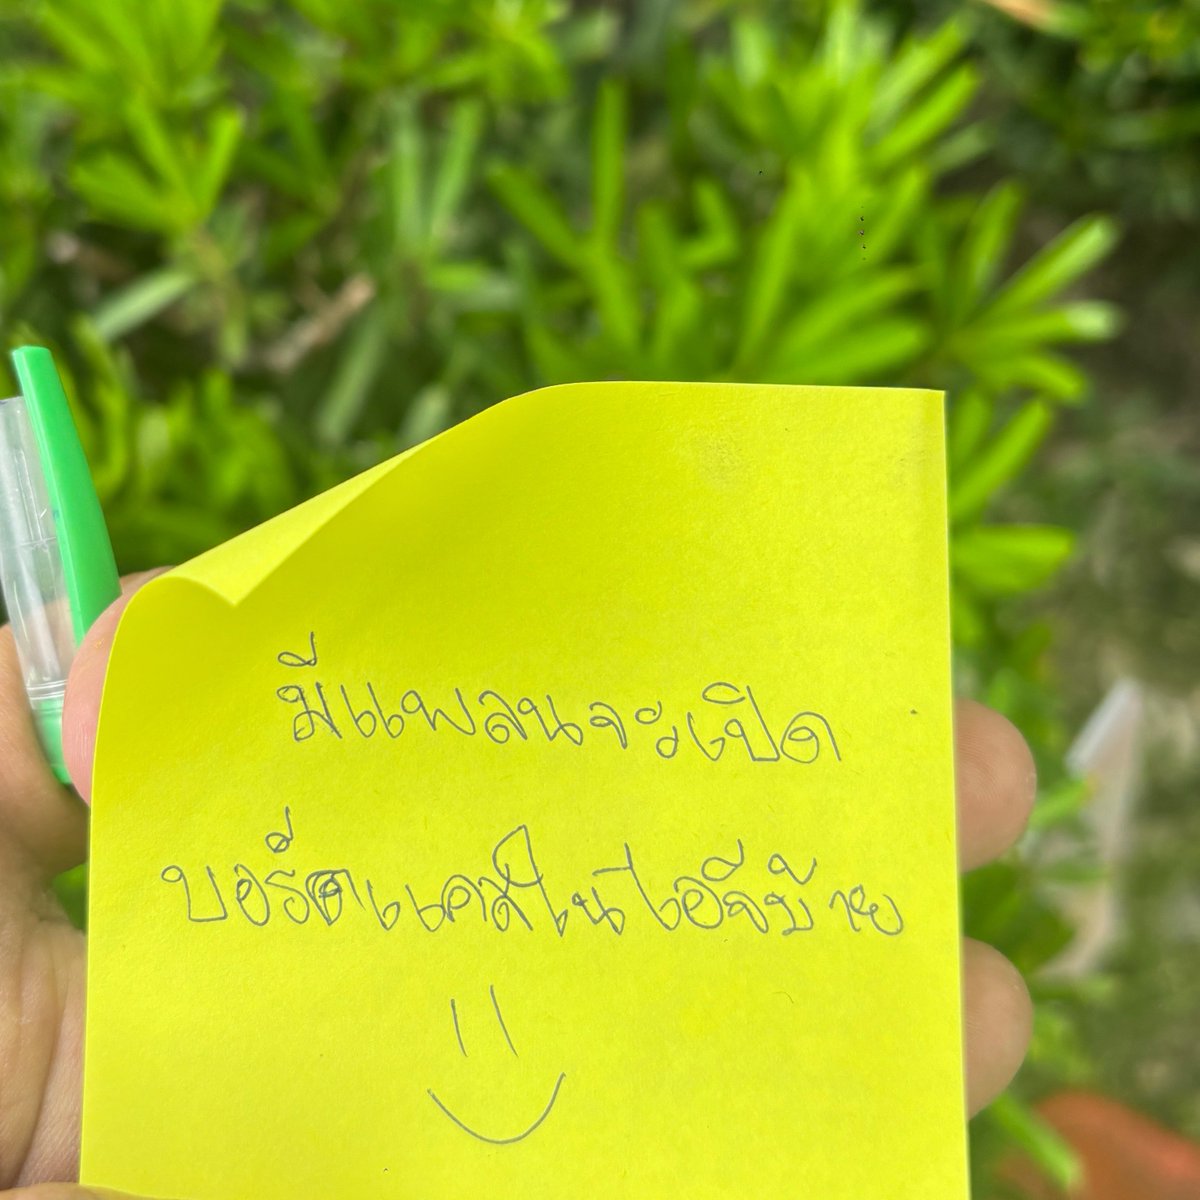 มีแพลนจะเปิด
บอร์ดแคสในไอจีมั้ย